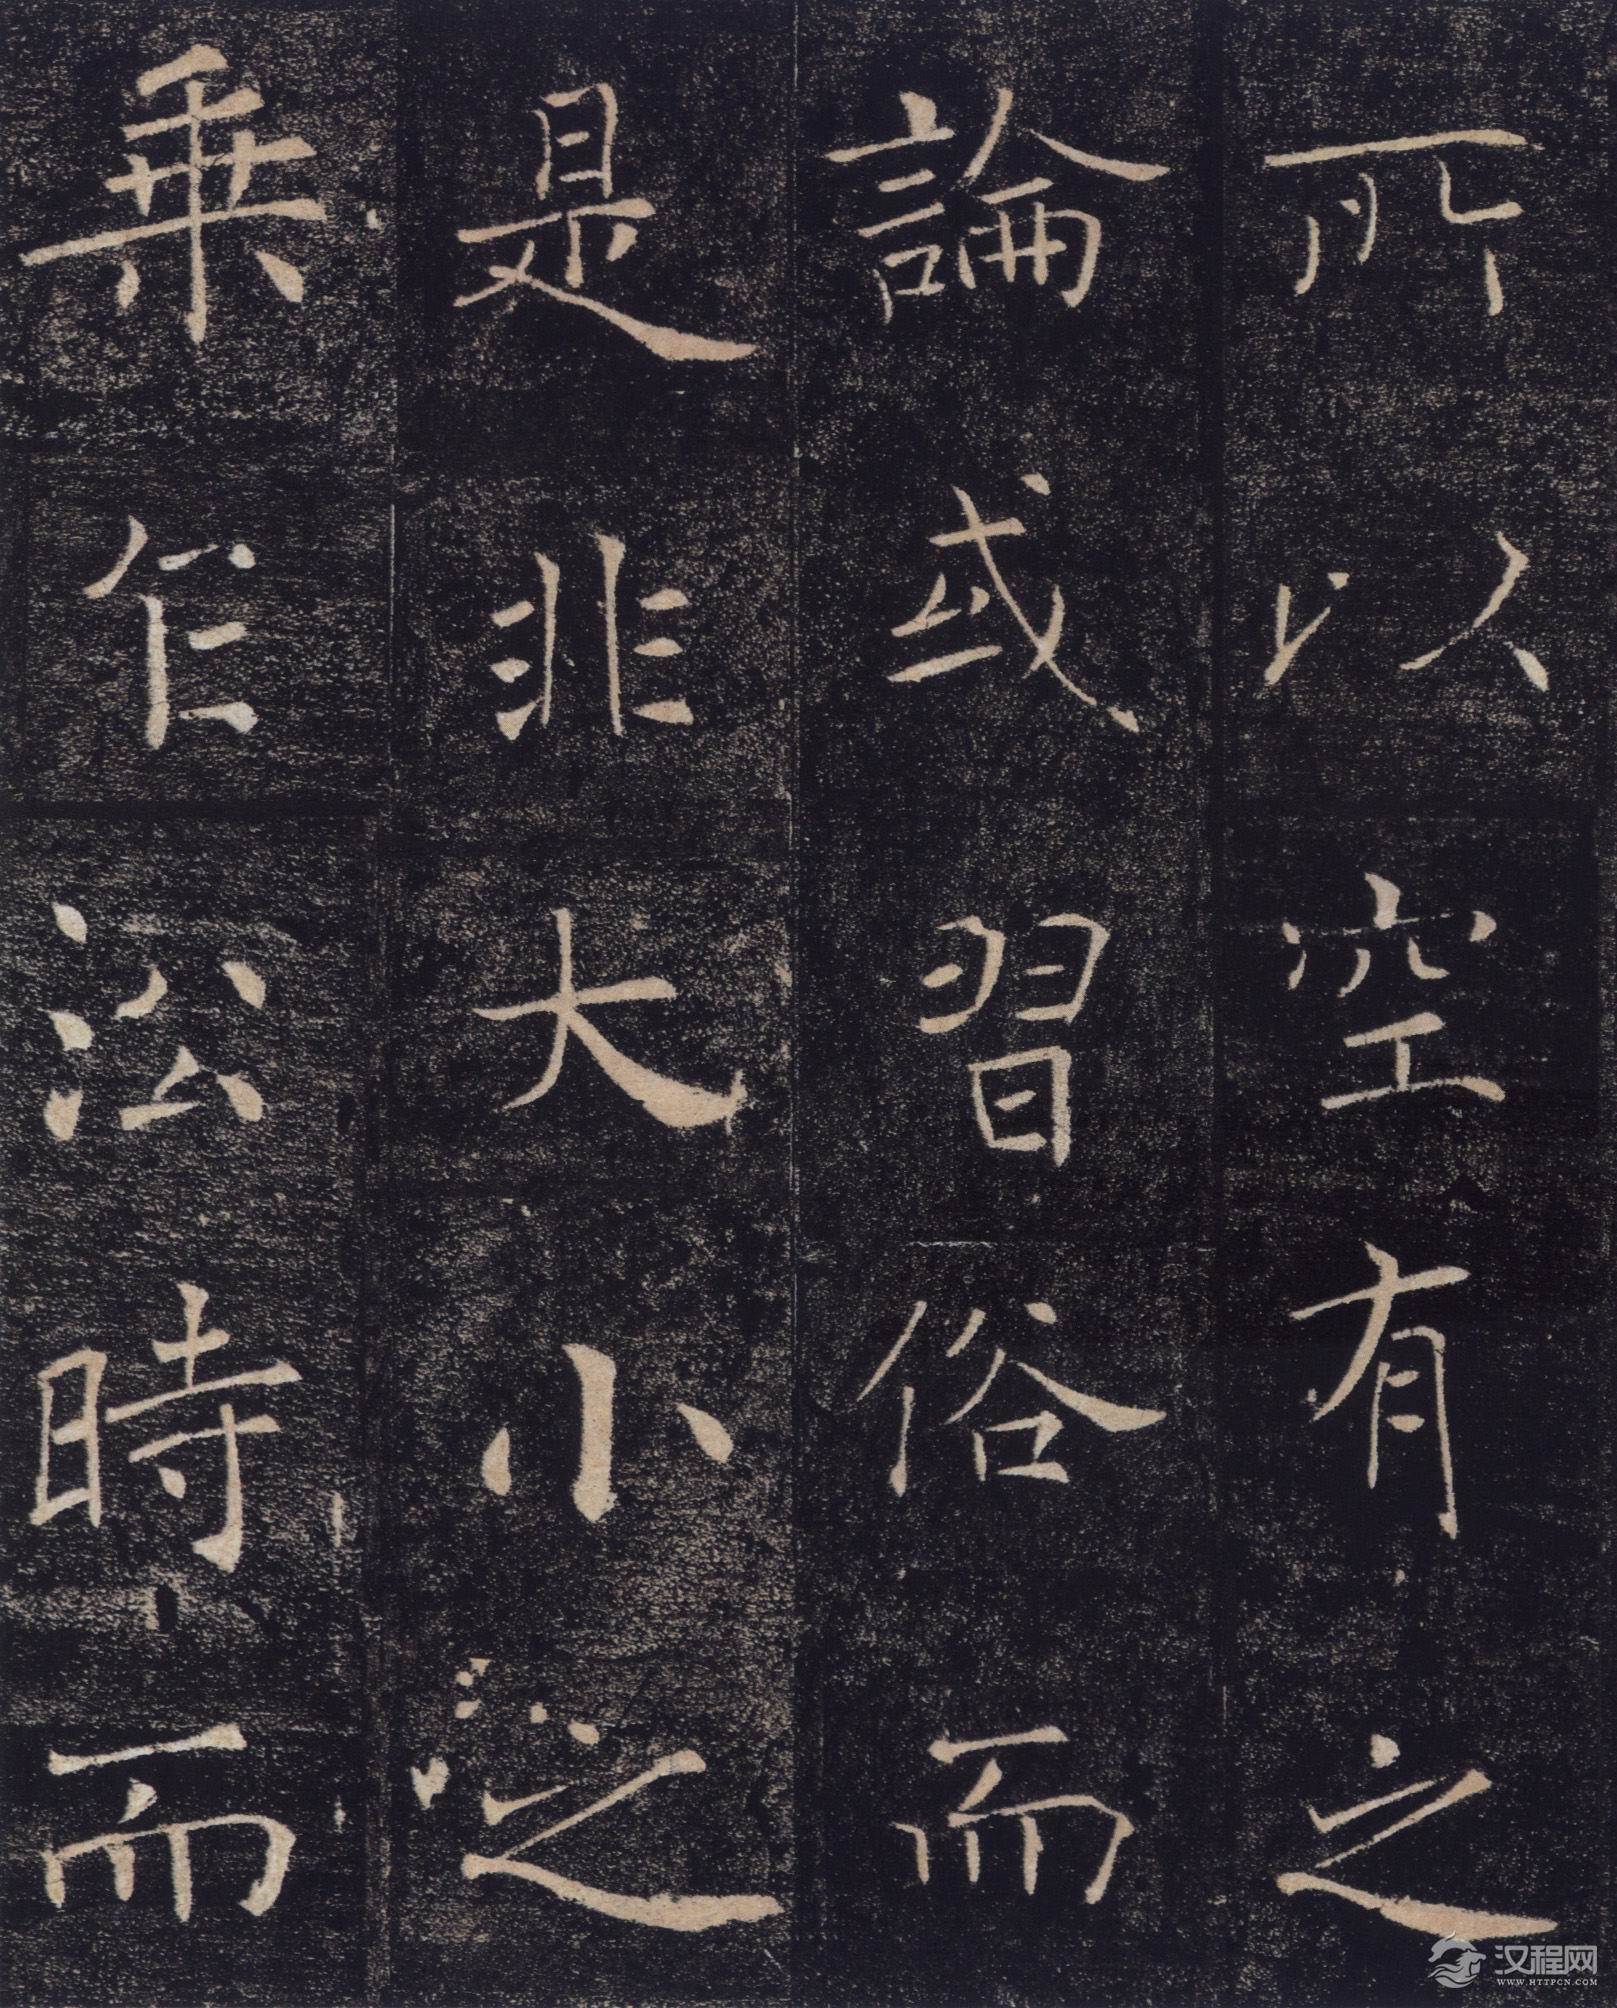 所以空有之
論或習俗而
是非大小之
乗乍㳂時而
汉程网
WWW.HTTPCN.COM